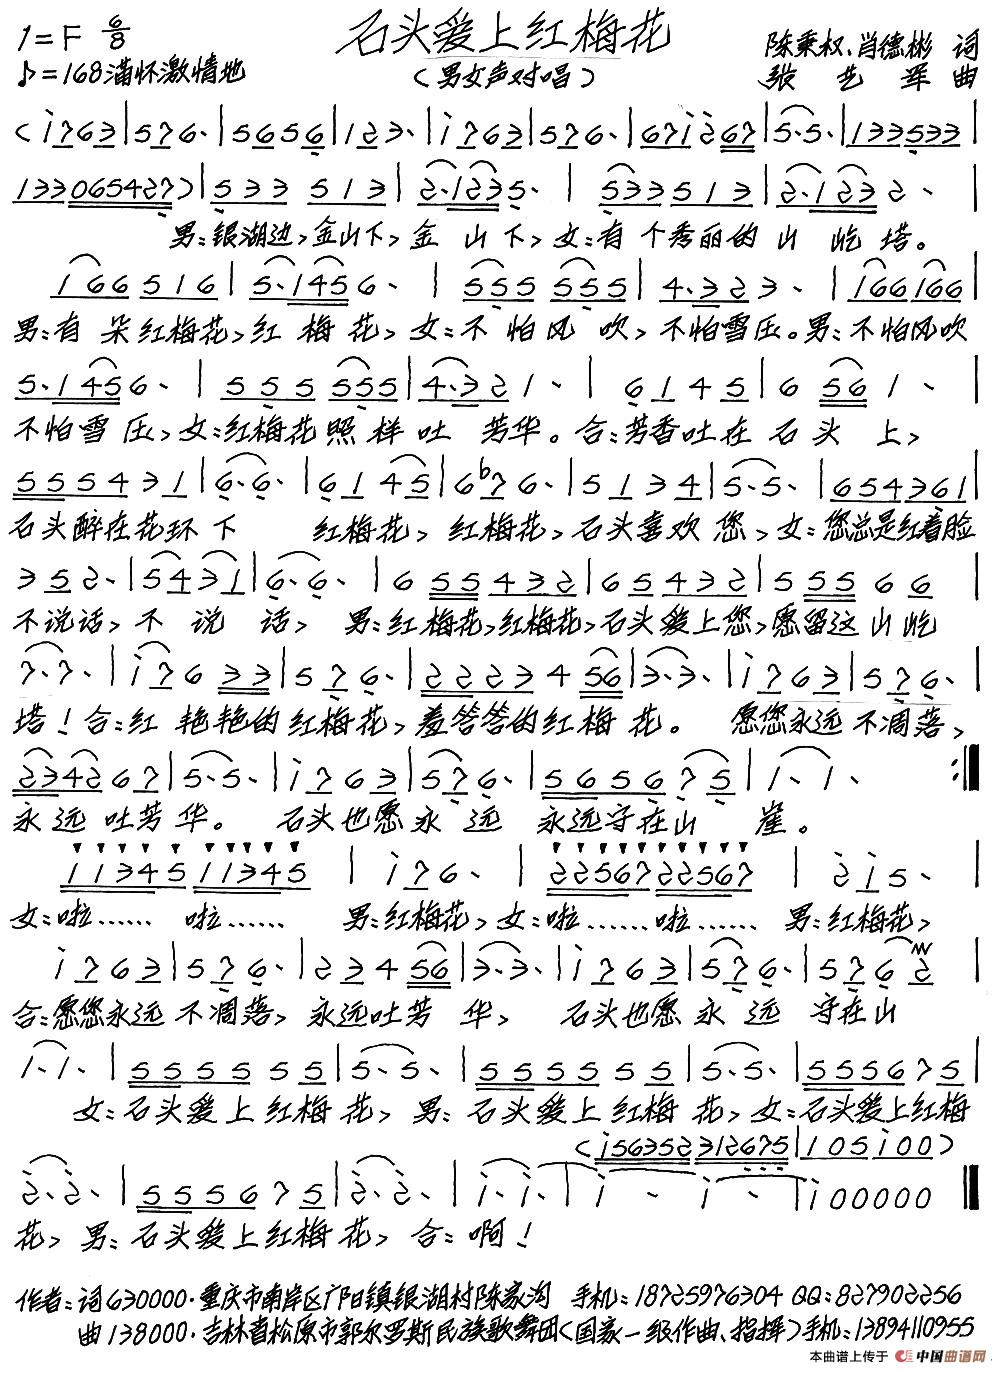 石头爱上红梅花
1=F 6/8
♪=168满怀激情地
(男女声对唱)
陈秉权、肖德彬 词
张艺军 曲
男:银湖边,金山下,金山下,女:有个秀丽的山屹塔。
男:有朵红梅花,红梅花,女:不怕风吹,不怕雪压。男:不怕风吹
不怕雪压,女:红梅花照样吐芳华。合:芳香吐在石头上,
石头醉在花环下 红梅花,红梅花,石头喜欢您,女:您总是红着脸
不说话,不说话,男:红梅花,红梅花,石头爱上您,愿留这山屹
塔!合:红艳艳的红梅花,羞答答的红梅花。愿您永远不凋落,
永远吐芳华。石头也愿永远永远守在山崖。
女:啦…… 啦…… 男:红梅花,女:啦…… 啦…… 男:红梅花,
合:愿您永远不凋落,永远吐芳华,石头也愿永远守在山
女:石头爱上红梅花,男:石头爱上红梅花,女:石头爱上红梅
花,男:石头爱上红梅花,合:啊!
作者:词630000·重庆市南岸区广阳镇银湖村陈家沟 手机:18725976304 QQ:827902256
曲138000·吉林省松原市郭尔罗斯民族歌舞团(国家一级作曲、指挥)手机:13894110955
本曲谱上传于 中国曲谱网